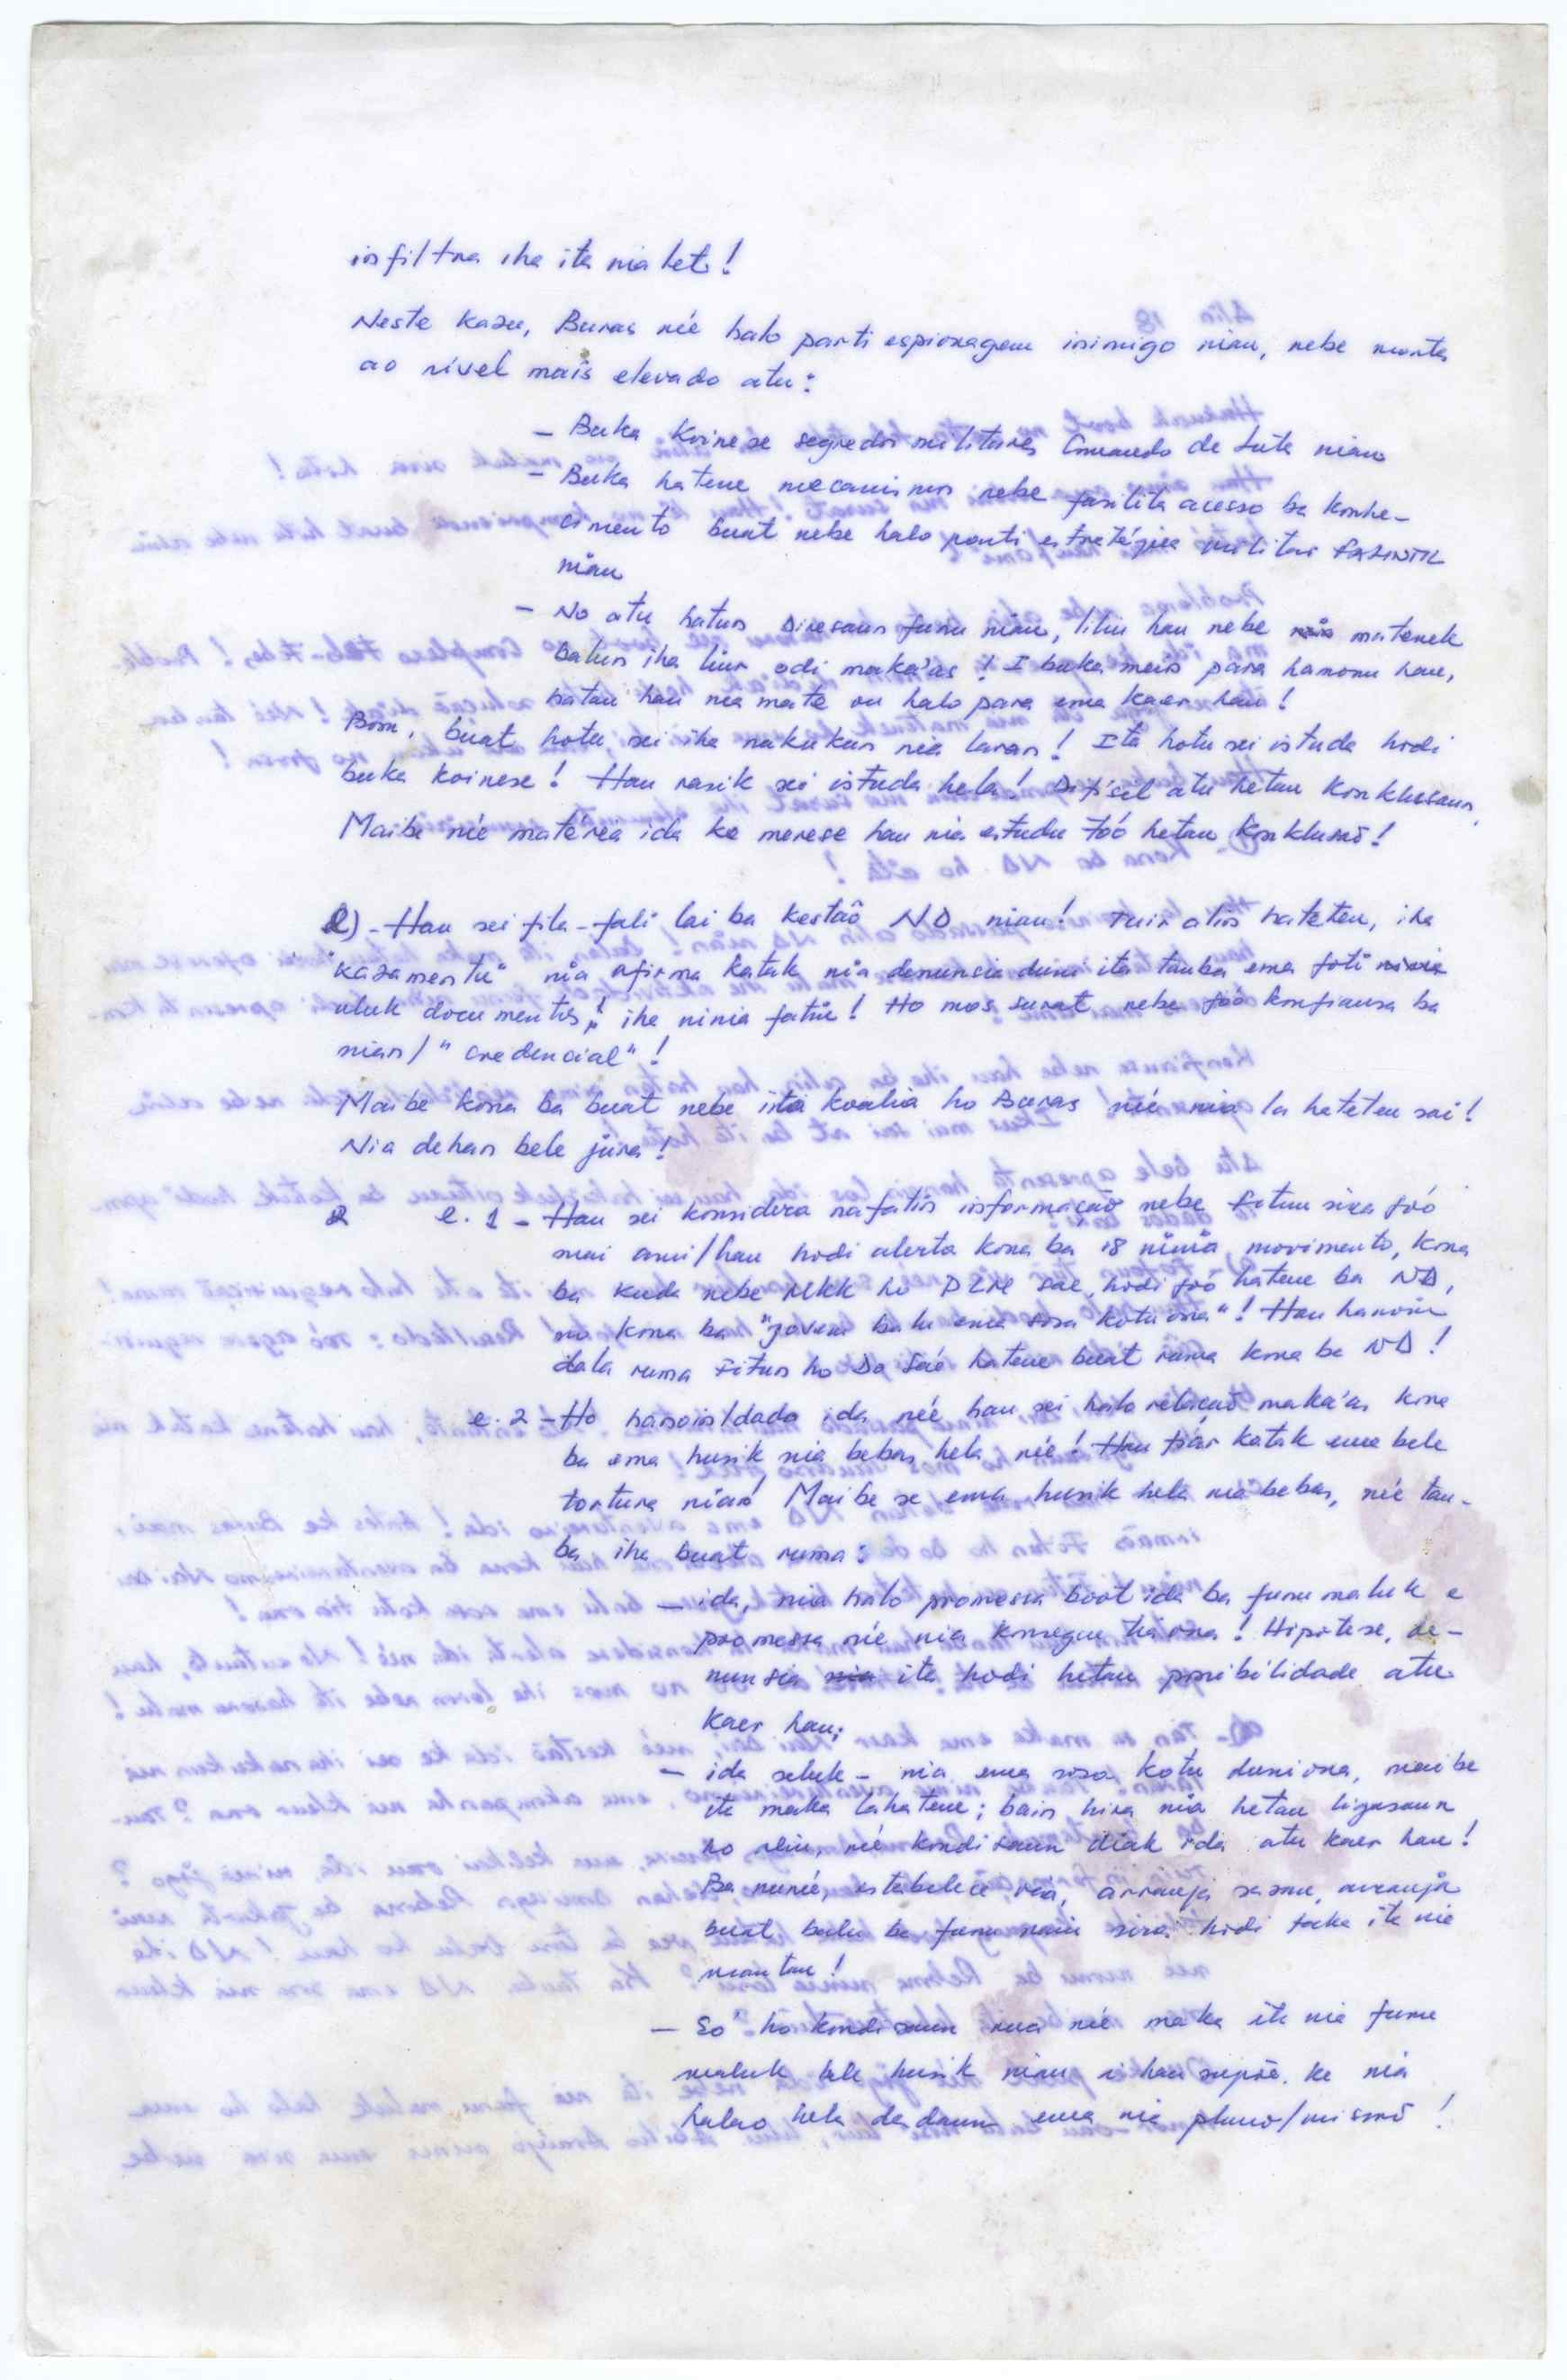 infiltra iha ita nia let!
Neste kazu, Buras né'e halo parti espionagem inimigo nian, nebe monta
ao nível mais elevado atu:
- Buka koinese segredos militares Comando de Luta nian
- Buka hatene mecanismos nebe fasilita acesso ba konhe-
cimento buat nebe halo parti estratégica militar FALINTIL
nian
- No atu hatun Diresaun funu nian, liliu hau nebe matenek
balun iha liur odi maka'as! I buka meis para hamonu hau,
hatau hau nia mate ou halo para ema kaer hau!
Bom, buat hotu sei iha nakukun nia laran! Ita hotu sei istuda hodi
buka koinese! Hau rasik sei istuda hela! Difisil atu hetan konklusaun,
Maibe né'e matérea ida ke merese hau nia estudu to'ó hetan konklusaõ!
e) - Hau sei fila-fali lai ba kestaõ ND nian! Tuir alin hateten, iha
"kazamentu" nia afirma katak nia denunsia duni ita tauba ema foti
uluk documentus, iha ninia fatin! Ho mos surat nebe foó konfiansa ba
nian/"credencial"!
Maibe kona ba buat nebe ita koalia ho Buras né'e nia la hateten sai!
Nia dehan bele júra!
e.1 - Hau sei konsidera nafatin informaçaõ nebe Fitun sira foó
mai ami/hau hodi alerta kona ba 18 ninia movimento, kona
ba kuda nebe MKK ho DLM sae, hodi foó hatene ba ND,
no kona ba "jovem balu ema sosa kotu ona"! Hau hanoin
dala ruma Fitun ho Do Saé hatene buat ruma kona ba ND!
e.2 - Ho hanoin/dadu ida né'e hau sei halo relaçaõ maka'as kona
ba ema husik nia bebas hela né'e! Hau fiar katak ema bele
tortura nian! Maibe se ema husik hela nia bebas, né'e tau-
ba iha buat ruma:
- ida, nia halo promessa boot ida ba funu maluk e
promessa né'e nia konsegue tia ona! Hipotese, de-
nunsia ita hodi hetan posibilidade atu
kaer hau;
- ida seluk - nia ema sosa kotu duni ona, maibe
ita maka la hatene; bain hira nia hetan ligasaun
ho né'e kondisaun diak ida atu kaer hau!
Ba nuné'e, estabelece via, arranja sasan, arranja
buat balu ba funu nain sira hodi taka ita nia
matan!
- So' ho kondisaun rua né'e maka ita nia funu
maluk bele husik nian i hau supõe ke nia
halao hela dadaun ema nia planu/misaõ!